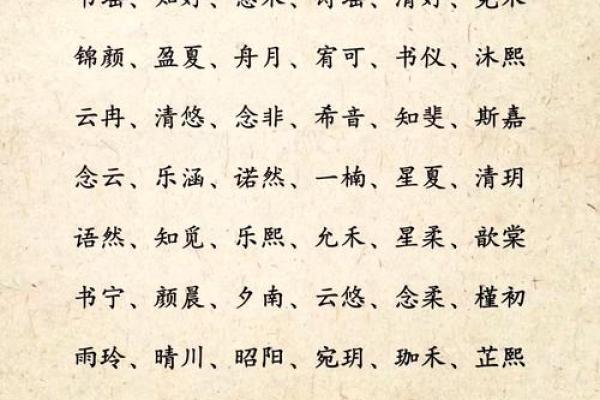 锦颜、盈夏、舟月、宥可、书仪、沐熙
云冉、清悠、念非、希音、知斐、斯嘉
念云、乐涵、诺然、一楠、星夏、清玥
语然、知觅、乐熙、允禾、星柔、歆棠
书宁、颜晨、夕南、云悠、念柔、槿初
雨玲、晴川、昭阳、宛玥、珈禾、芷熙